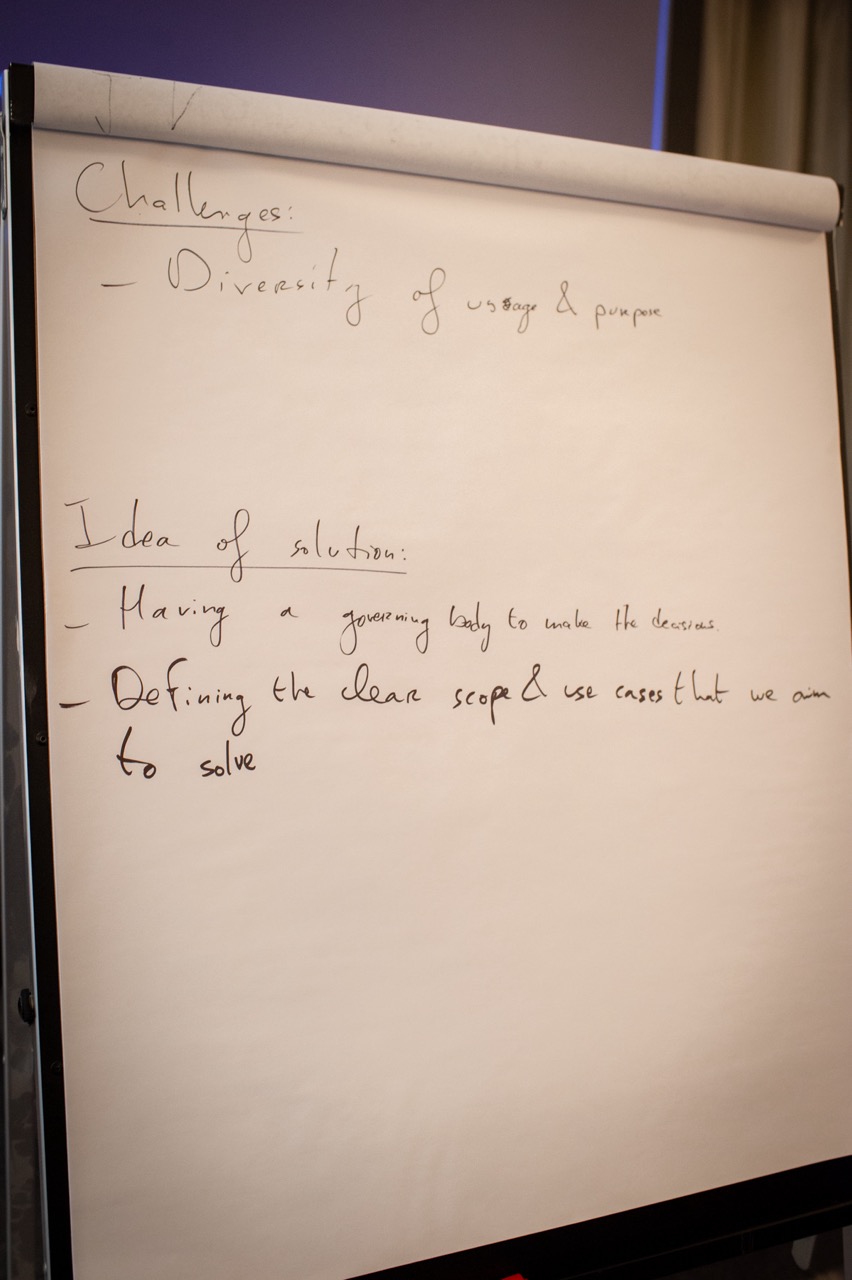 Challenges:
- Diversity of usage & purpose
Idea of solution:
- Having a governing body to make the decisions.
- Defining the clear scope & use cases that we aim
to solve